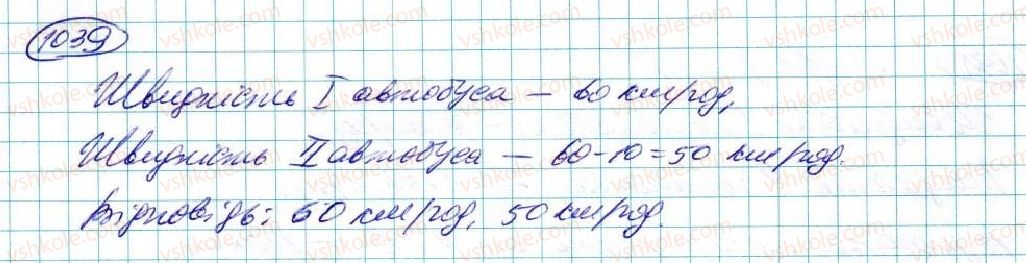 1039
Швидкість I автобуса – 60 км/год,
Швидкість II автобуса – 60-10=50 км/год.
Відповідь: 60 км/год, 50 км/год.